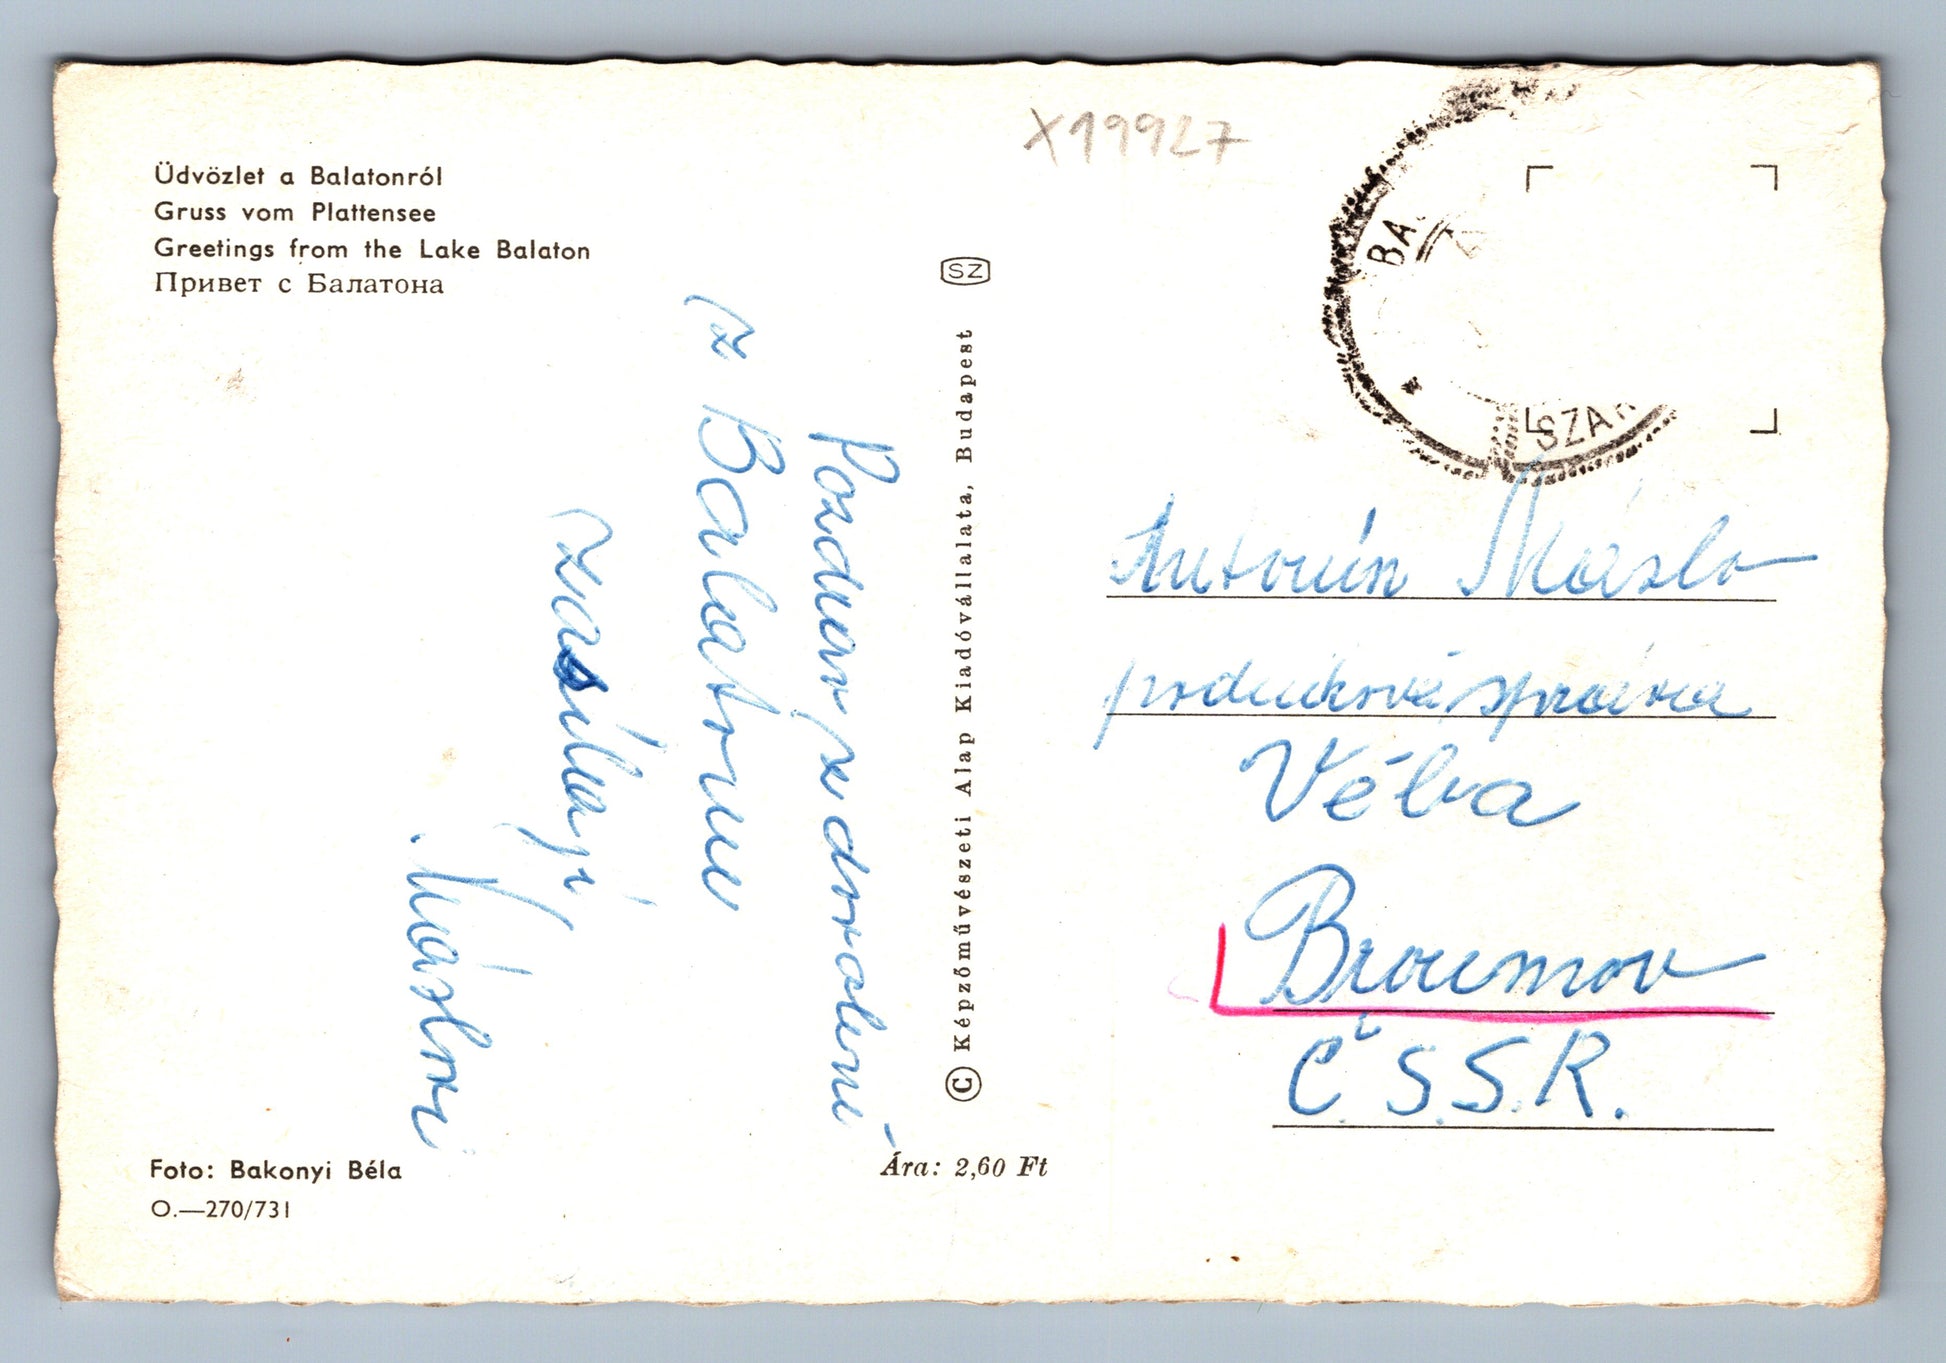 Üdvözlet a Balatonról
Gruss vom Plattensee
Greetings from the Lake Balaton
Привет с Балатона
Pozdrav z dovolení
z Balatonu
zasílají
Máslovi
Foto: Bakonyi Béla
O.—270/731
SZ
© Képzőművészeti Alap Kiadóvállalata, Budapest
Ára: 2,60 Ft
X19927
BA
SZA
Antonín Máslo
správa
Véba
Broumov
Č.S.S.R.